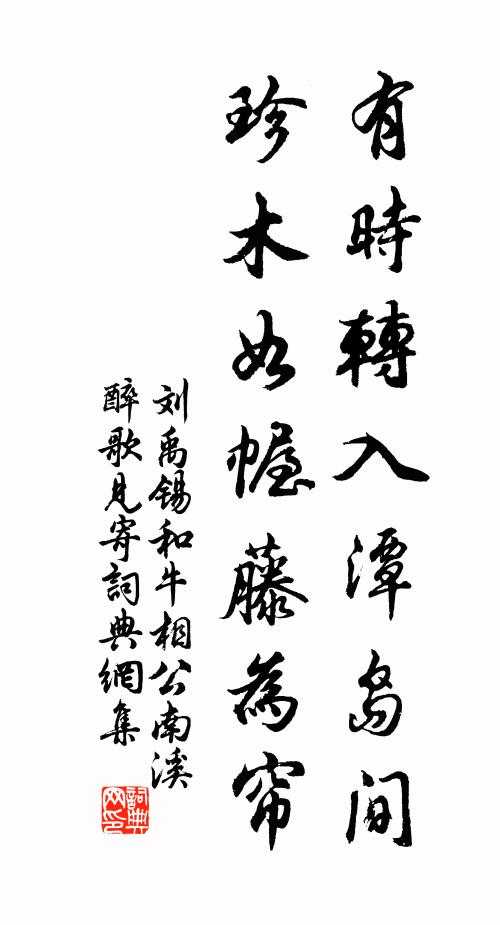 有時轉入潭島間
珍木如幄藤為帘
刘禹锡和牛相公南溪
醉歌見寄詞典網集
詞典
网印